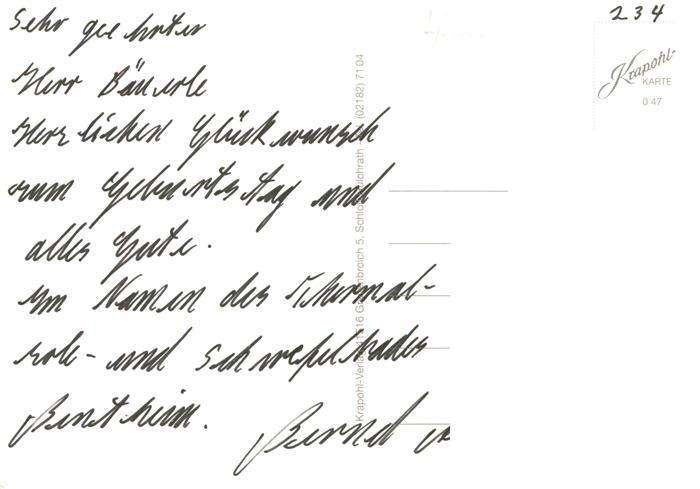 234
Krapohl-
KARTE
0 47
Sehr geehrter
Herr Bäuerle
Herzlichen Glückwunsch
zum Geburtstag und
alles Gute.
Im Namen des Thermal-
sole- und Schwefelbades
Bentheim.
Bernd
Krapohl-Verlag 5, Schloß (02182) 71 04